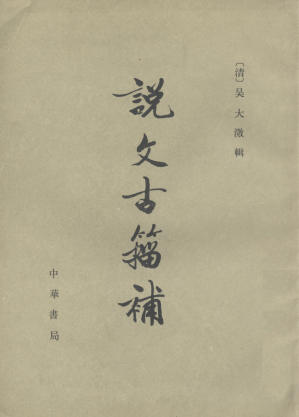 〔清〕吴大澂輯
説文古籀補
中華書局